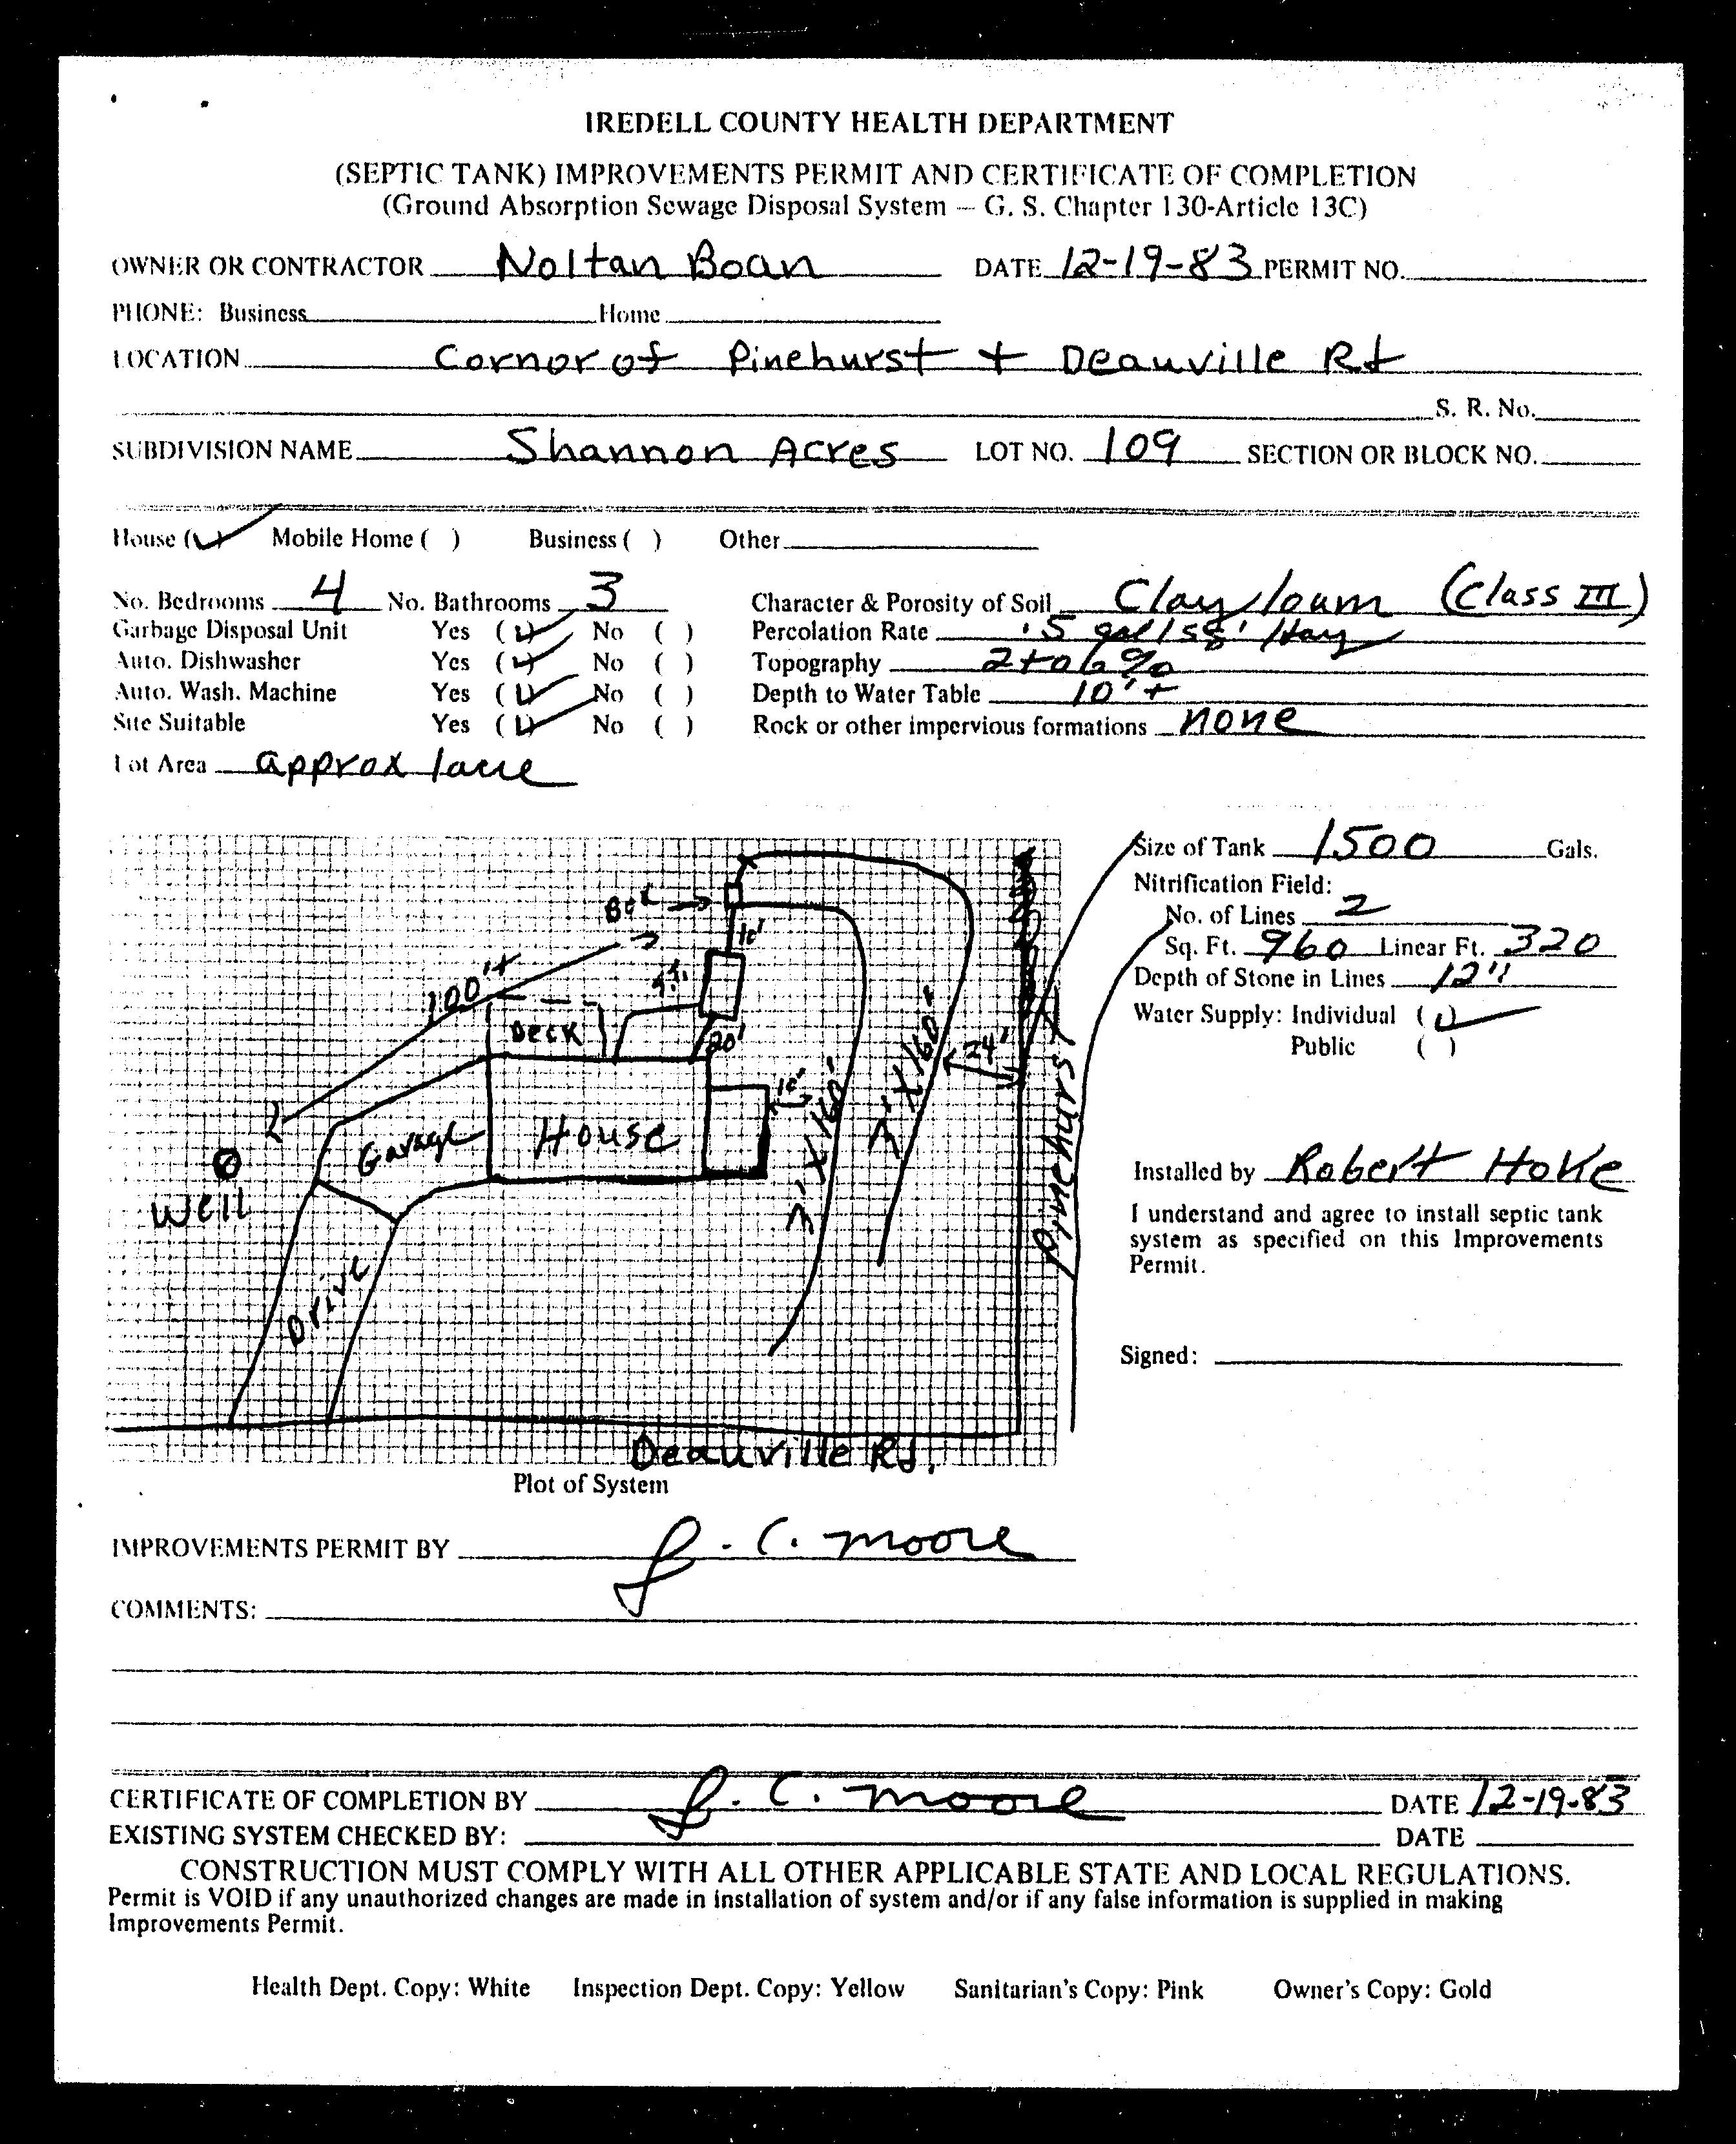 IREDELL COUNTY HEALTH DEPARTMENT
(SEPTIC TANK) IMPROVEMENTS PERMIT AND CERTIFICATE OF COMPLETION
(Ground Absorption Sewage Disposal System — G. S. Chapter 130-Article 13C)
OWNER OR CONTRACTOR Noltan Boan DATE 12-19-83 PERMIT NO.
PHONE: Business Home
LOCATION Cornor of Pinehurst + Deauville Rd
S. R. No.
SUBDIVISION NAME Shannon Acres LOT NO. 109 SECTION OR BLOCK NO.
House (✓) Mobile Home ( ) Business ( ) Other
No. Bedrooms 4 No. Bathrooms 3 Character & Porosity of Soil Clay loam (Class III)
Garbage Disposal Unit Yes (✓) No ( ) Percolation Rate .5 gal/sq'/day
Auto. Dishwasher Yes (✓) No ( ) Topography 2 to 6 %
Auto. Wash. Machine Yes (✓) No ( ) Depth to Water Table 10'+
Site Suitable Yes (✓) No ( ) Rock or other impervious formations none
Lot Area approx 1 acre
Size of Tank 1500 Gals.
Nitrification Field:
No. of Lines 2
Sq. Ft. 960 Linear Ft. 320
Depth of Stone in Lines 12"
Water Supply: Individual (✓)
Public ( )
Box
10'
100'+
Deck
20'
24'
10'
3' X 160'
3' X 160'
Pinehurst
Garage
House
Well
Drive
Deauville Rd.
Installed by Robert Hoke
I understand and agree to install septic tank
system as specified on this Improvements
Permit.
Signed:
Plot of System
IMPROVEMENTS PERMIT BY J. C. Moore
COMMENTS:
CERTIFICATE OF COMPLETION BY J. C. Moore DATE 12-19-83
EXISTING SYSTEM CHECKED BY: DATE
CONSTRUCTION MUST COMPLY WITH ALL OTHER APPLICABLE STATE AND LOCAL REGULATIONS.
Permit is VOID if any unauthorized changes are made in installation of system and/or if any false information is supplied in making
Improvements Permit.
Health Dept. Copy: White Inspection Dept. Copy: Yellow Sanitarian's Copy: Pink Owner's Copy: Gold